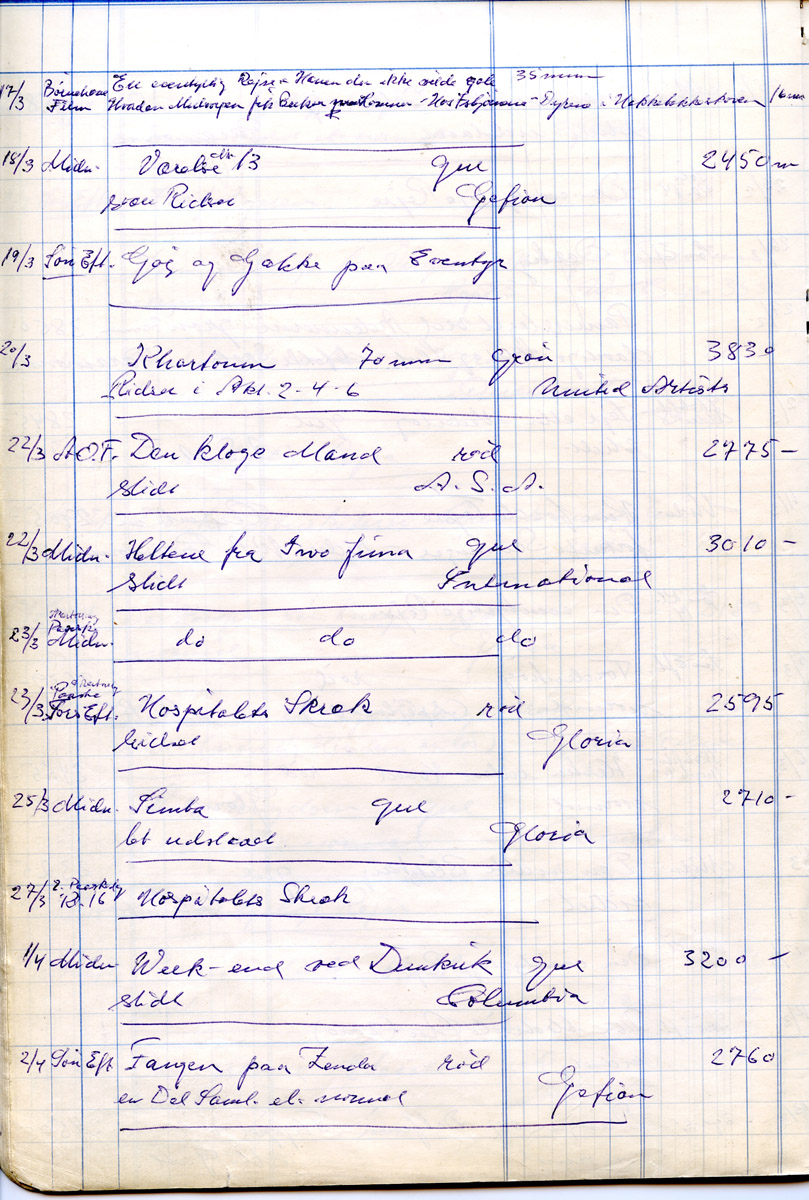 17/3 Børnehave En eventyrlig Rejse Hanen der ikke vilde gale 35 mm
Film Hvordan fik - Hos - Dyrene i Hakkebakkeskoven 16 mm
18/3 Midn. 13 gul 2450 m
svær Ridser Gefion
19/3 Søn Eft. Gøg og Gokke paa Eventyr
20/3 Khartoum 70 mm grøn 3830
Ridser i Akt. 2-4-6 United Artists
22/3 A.O.F. Den kloge Mand rød 2775 —
slidt A. S. A.
22/3 Midn. Heltene fra Iwo Jima gul 3010 —
slidt International
Skærtorsdag
23/3 Midn. do do do
23/3 Tors Eft. Hospitalets Skræk rød 2595
ridset Gloria
25/3 Midn. Simba gul 2710 -
lt udslaaet Gloria
27/3 2. Paaskedag Kl. 16 Hospitalets Skræk
1/4 Midn Week-end ved Dunkirk gul 3200 —
slidt Columbia
2/4 Søn Eft Fangen paa Zenda rød 2760
en Del Saml. el. normal Gefion